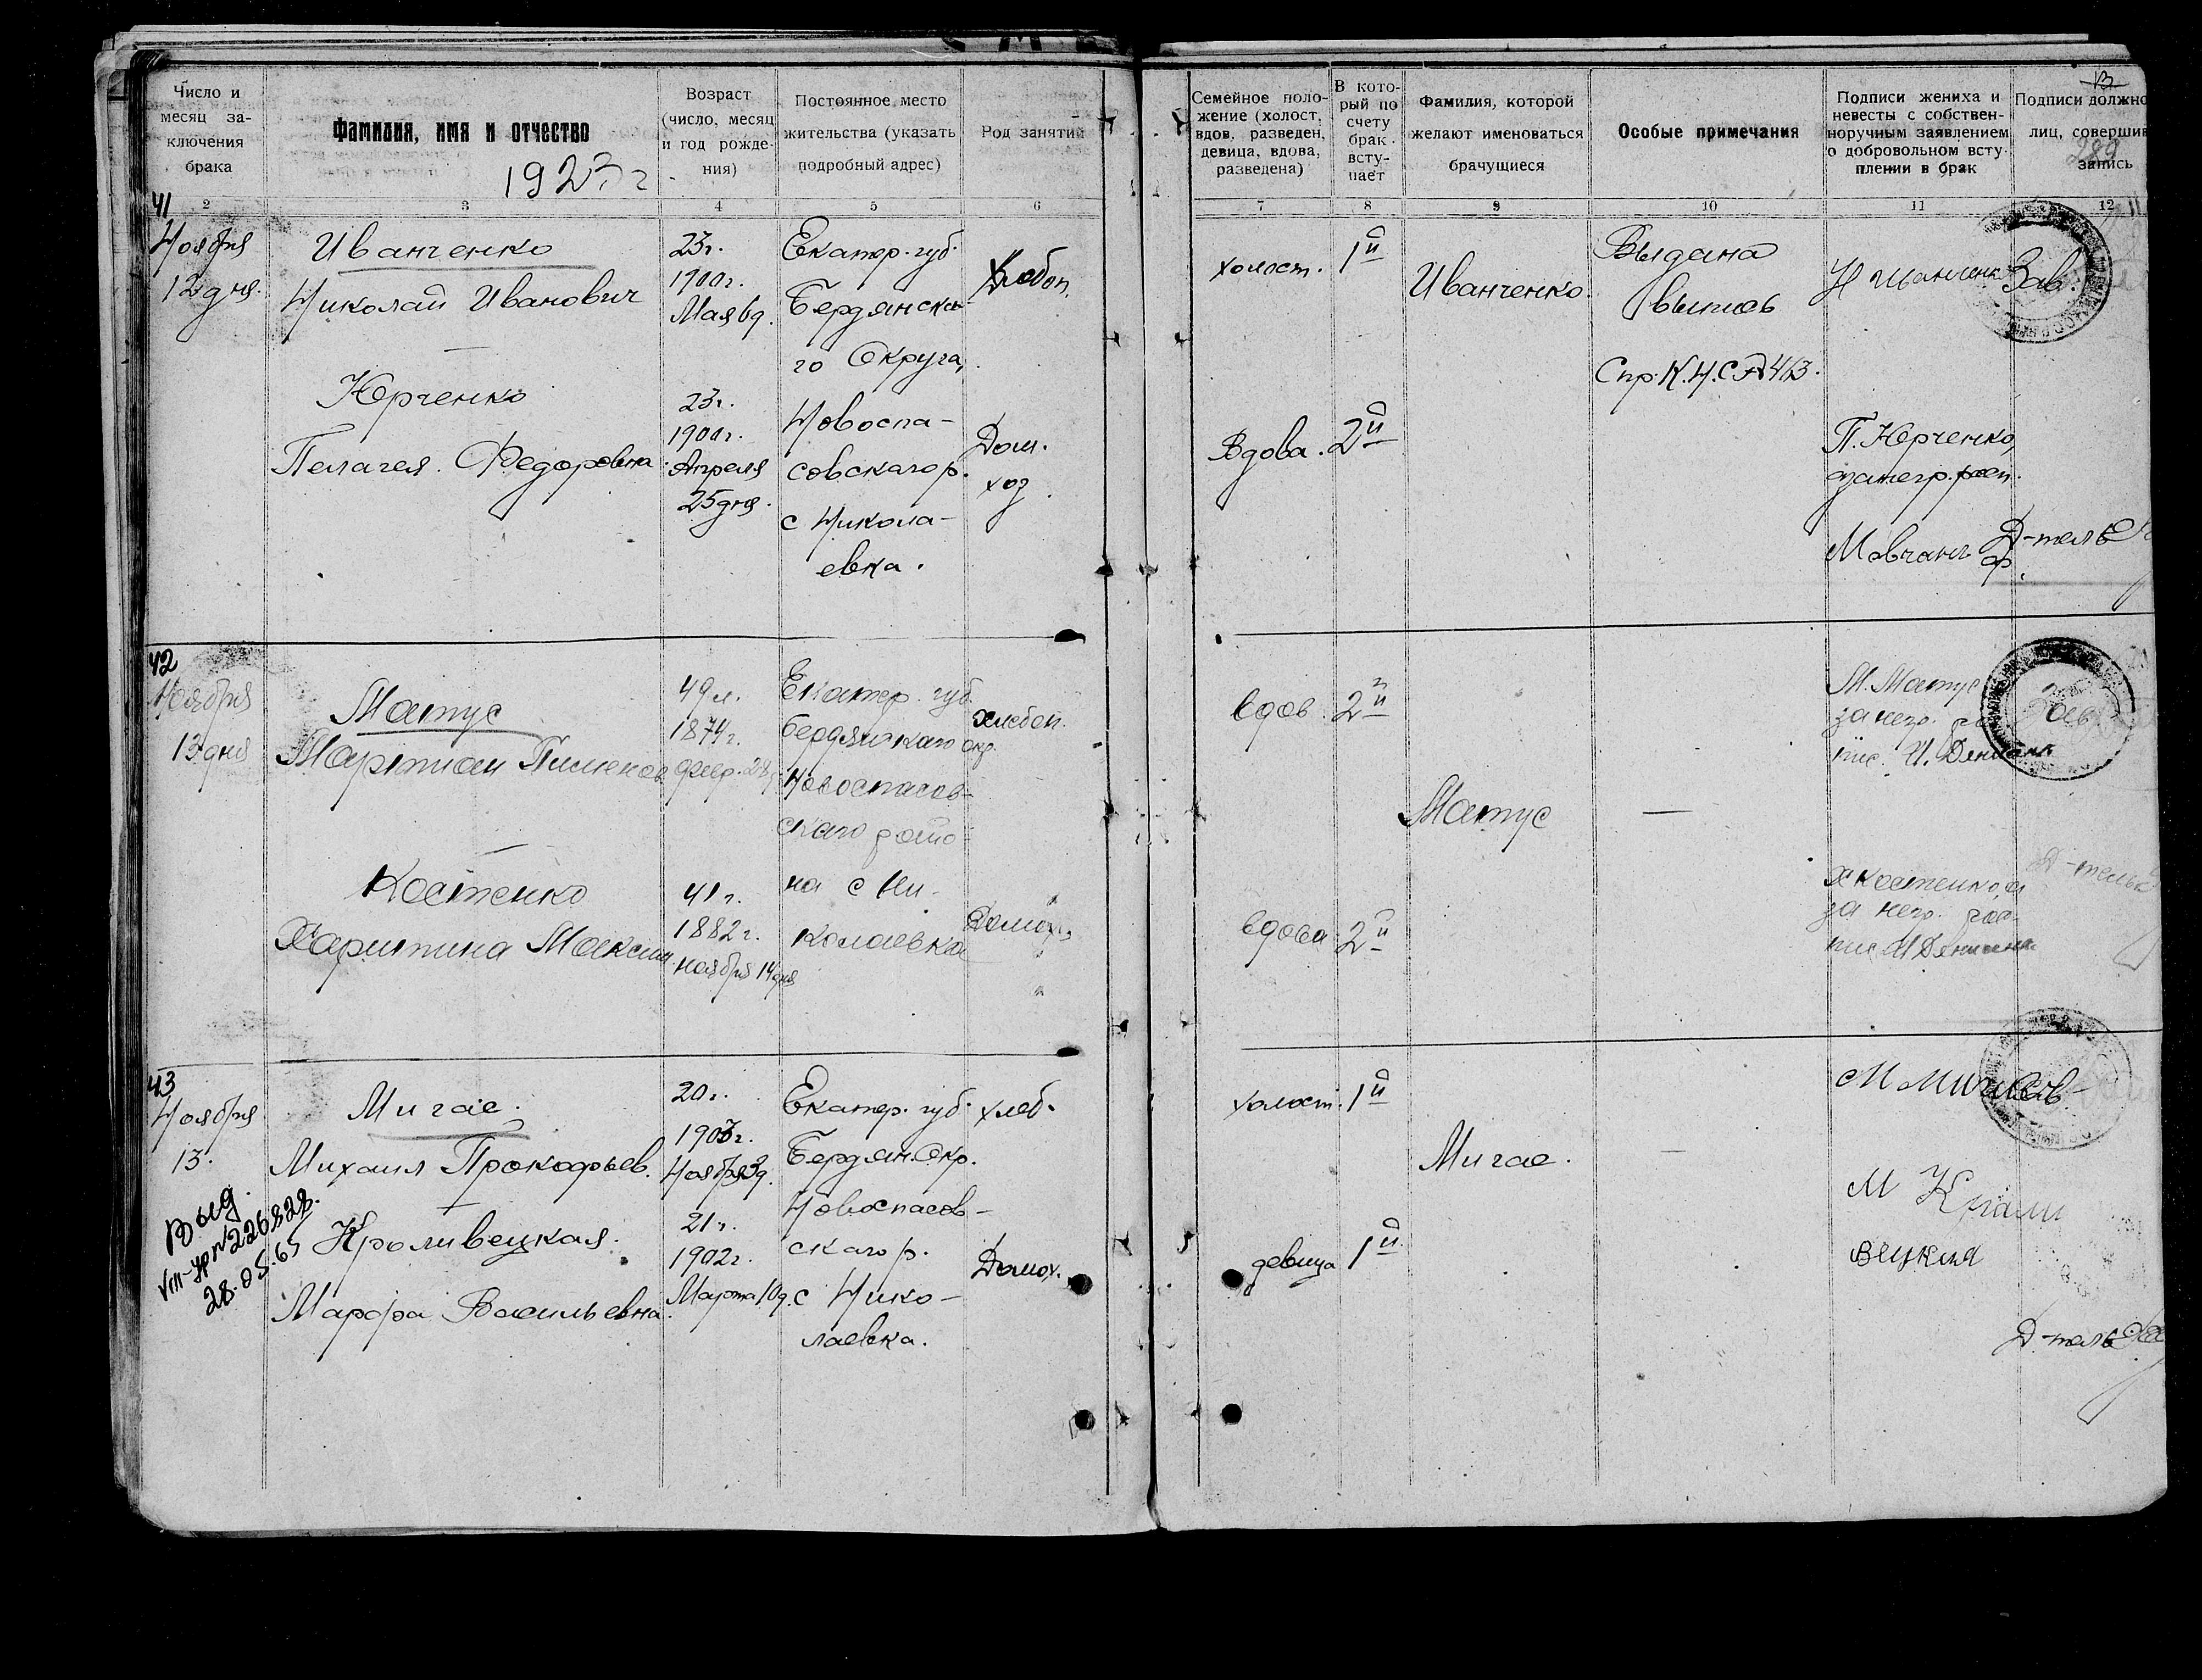 Число и
месяц за-
ключения
брака
Фамилия, имя и отчество
1923 г
Возраст
(число, месяц
и год рожде-
ния)
Постоянное место
жительства (указать
подробный адрес)
Род занятий
Семейное поло-
жение (холост,
вдов, разведен,
девица, вдова,
разведена)
В кото-
рый по
счету
брак
всту-
пает
Фамилия, которой
желают именоваться
брачущиеся
Особые примечания
Подписи жениха и
невесты с собствен-
норучным заявлением
о добровольном всту-
плении в брак
13
Подписи должно
лиц, совершив
289
запись
2 3 4 5 6 7 8 9 10 11 12
41
Ноября
12 дня.
Иванченко
Николай Иванович
Юрченко
Пелагея. Федоровна
23г.
1900г.
Мая 6д.
23г.
1900г.
Апреля
25 дня.
Екатер. губ.
Бердянско-
го Округа,
Новоспа-
совскаго р.
с Никола-
евка.
Хлебоп.
Дом.
хоз.
холост.
Вдова.
1й
2й
Иванченко.
Выдана
выпись
Спр. К.Н.С. № 463.
Н Иванченк
П. Юрченко,
Мовчан
Зав.
Д-тель
42
Ноября
13 дня
Матус
Мартиан Пименов
Костенко
Харитина Максим.
49 л.
1874г.
февр. 28
41 г.
1882 г.
ноября 14 дня
Екатер. губ.
Бердянскаго окр.
Новоспасов-
скаго райо-
на с Ни-
колаевка
хлебоп.
Домохоз
вдов.
вдова
2й
2й
Матус
—
М. Матус
за негр. рос
пис. И. Денисенк
Х Костенкой
за негр. рос-
пис И Денисенк
Зав
Д-тель
43
Ноября
13.
Выд.
VIII-УР № 226828.
28.05.65
Мигас.
Михаил Прокофьев.
Кроливецкая.
Марфа Васильевна.
20 г.
1903г.
Ноября 3д.
21 г.
1902г.
Марта 10д.
Екатер. губ.
Бердян. Окр.
Новоспасов-
скаго р.
с Нико-
лаевка.
хлеб.
Домох.
холост.
девица
1й
1й
Мигас.
—
М Мигас
М Крали
вецкия
Зав
Д-тель